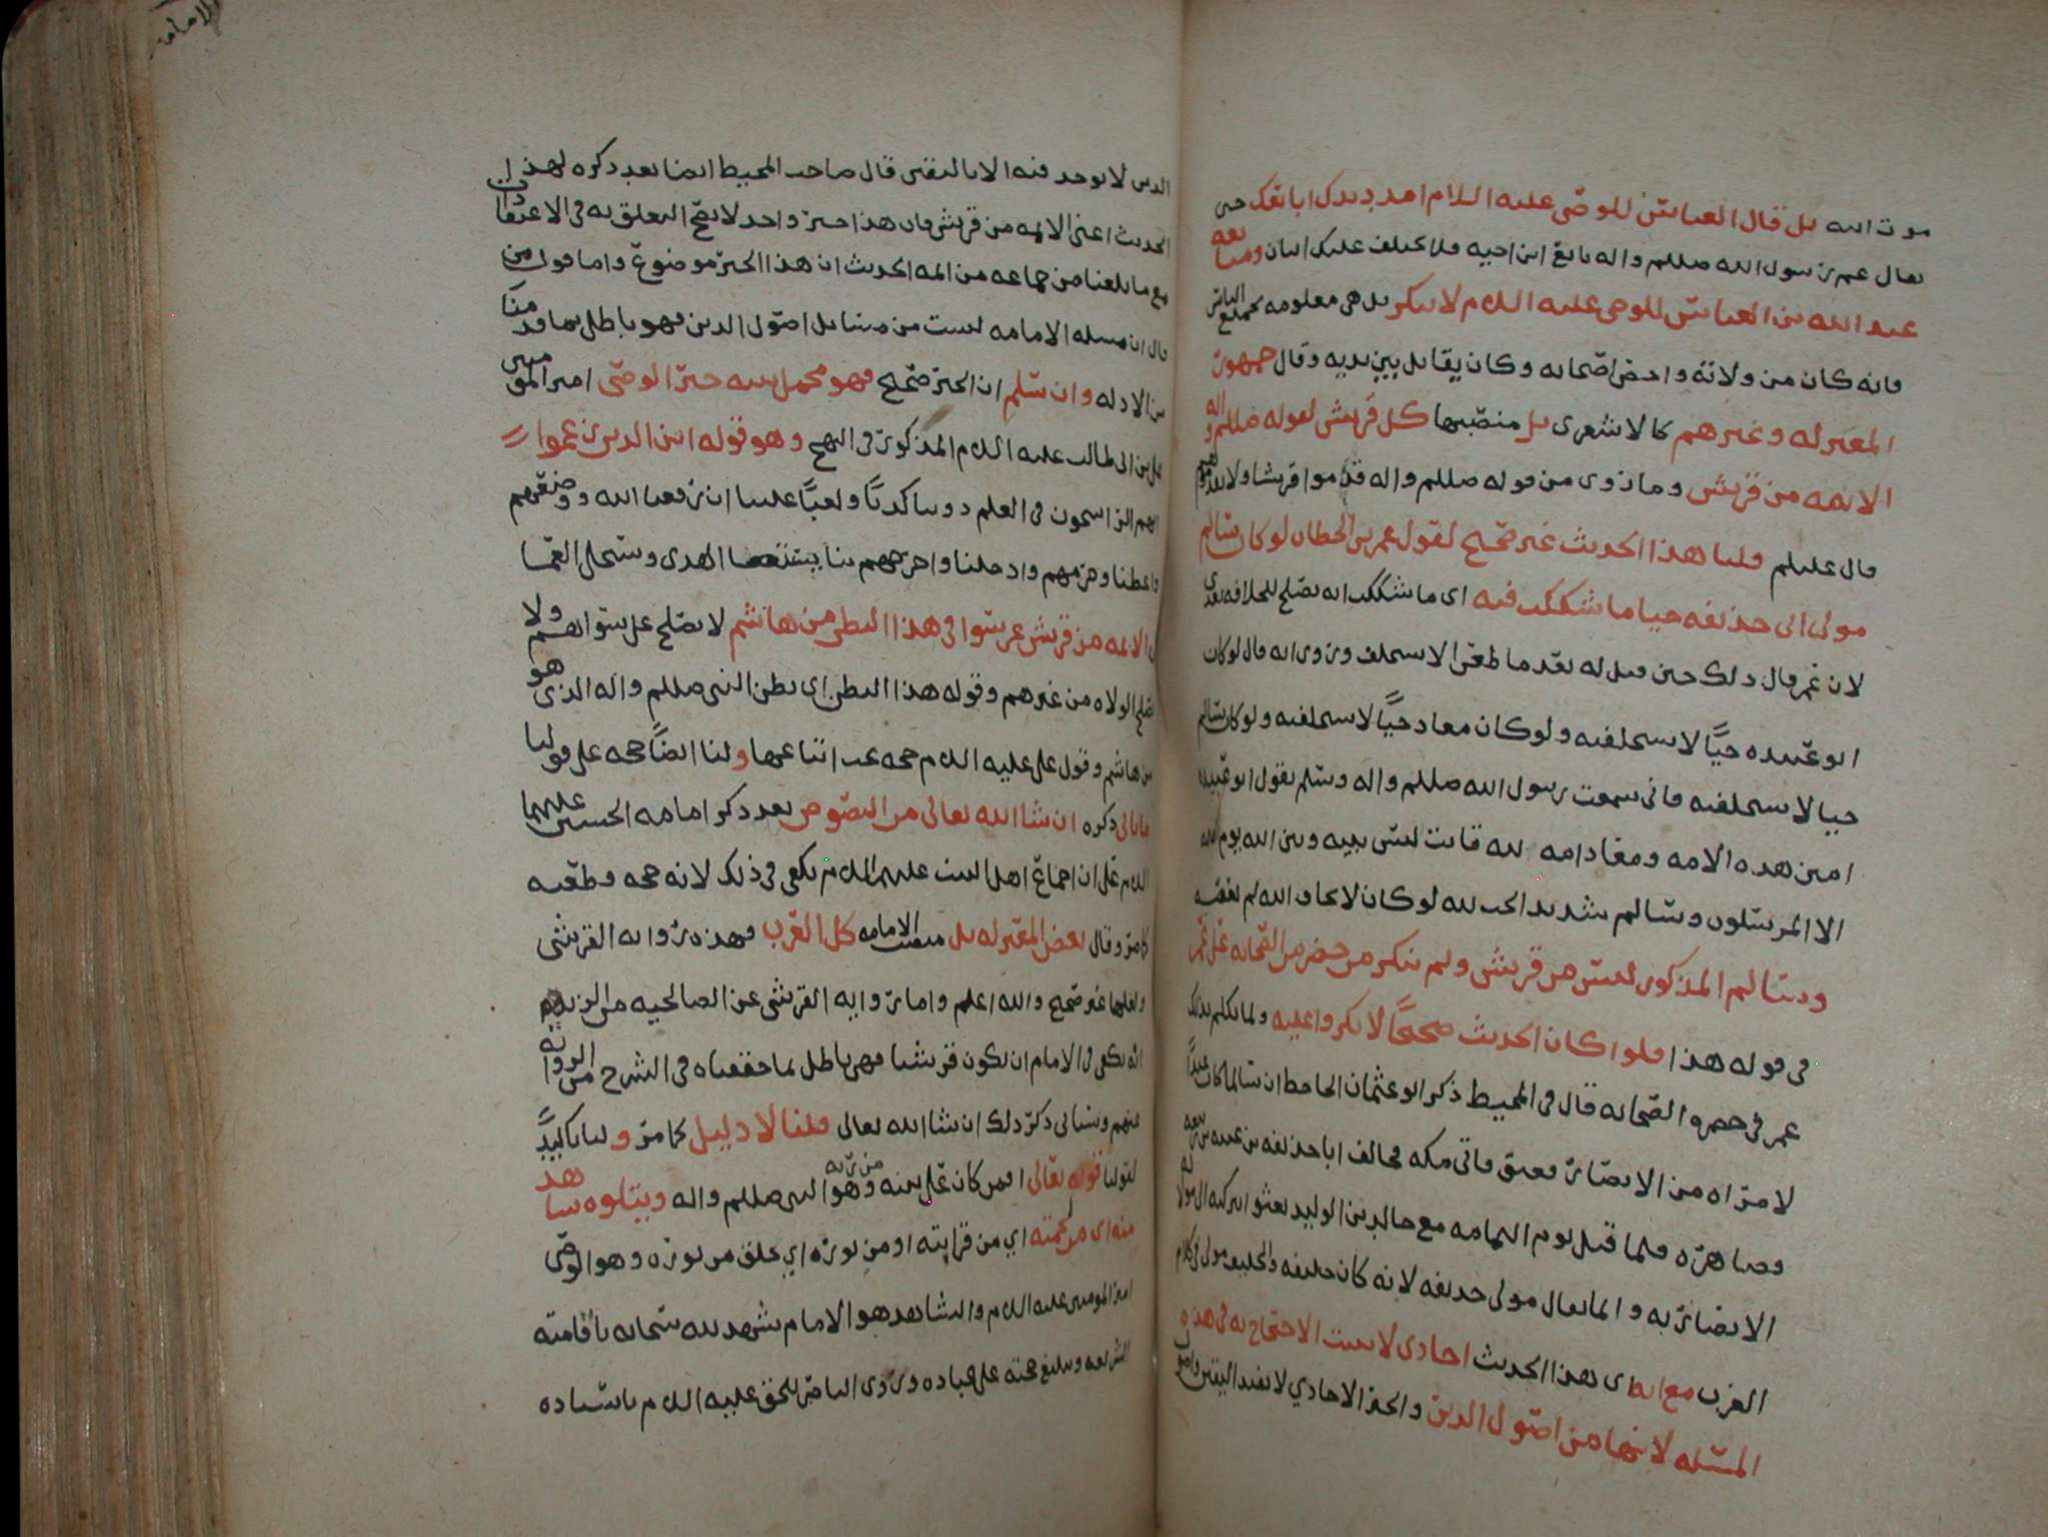 موت ابيه بل قال العباس للوصي عليه السلام امدد يدك ابايعك حتى
يقال عم رسول الله صللم واله بايع ابن اخيه فلا يختلف عليك اثنان ومبايعه
عبد الله بن العباس للوصي عليه السلام لا تنكر بل هي معلومه لجميع الناس
فانه كان من ولاته واخص اصحابه وكان يقاتل بين يديه وقال جمهور
المعتزله وغيرهم كالاشعري بل منصبها كل قريش لقوله صللم واله
الائمه من قريش وما روي من قوله صللم واله قدموا قريشا ولا تقدموهم
قال عليلم قلنا هذا الحديث غير صحيح لقول عمر بن الخطاب لو كان سالم
مولى ابي حذيفه حيا ما شككت فيه اي ما شككت انه يصلح للخلافه بعدي
لان عمر قال ذلك حين قيل له بعد ما طعن الا تستخلف وروي انه قال لو كان
ابو عبيده حيًّا لاستخلفته ولو كان معاذ حيًّا لاستخلفته ولو كان سالم
حيا لاستخلفته فاني سمعت رسول الله صللم واله وسلم يقول ابو عبيده
امين هذه الامه ومعاذ امه لله قانت ليس بينه وبين الله يوم
الا المرسلون وسالم شديد الحب لله لو كان لا يخاف الله لم يعصه
وسالم المذكور ليس من قريش ولم ينكر من حضر من الصحابه على عمر
في قوله هذا فلو كان الحديث صحيحًا لانكروا عليه ولما تكلم بذلك
عمر في حضره الصحابه قال في المحيط ذكر ابو عثمان الجاحظ ان سالما كان عبدًا
لامراه من الانصار فعتق واتى مكه فحالف ابا حذيفه بن عتبه بن ربيعه
وصاهره فلما قتل يوم اليمامه مع خالد بن الوليد بعثوا بتركته الى مولاته
الانصاريه وانما يقال مولى حذيفه لانه كان حليفه والحليف مولى في كلام
العرب مع انه اي هذا الحديث احادي لا يثبت الاحتجاج به في هذه
المسئله لانها من اصول الدين والخبر الاحادي لا يفيد اليقين واصول
الدين لا يوخذ فيه الا باليقين قال صاحب المحيط ايضا بعد ذكره لهذا
الحديث اعني الائمه من قريش فان هذا خبر واحد لا يصح التعلق به في الاعتقادات
مع ما بلغنا من جماعه من ائمه الحديث ان هذا الخبر موضوع واما قول من
قال ان مسئله الامامه ليست من مسائل اصول الدين فهو باطل بما قدمنا
من الادله وان سلم ان الخبر صحيح فهو مجمل بينه خبر الوصي امير المؤمنين
علي بن ابي طالب عليه السلام المذكور في النهج وهو قوله اين الذين زعموا
انهم الراسخون في العلم دوننا كذبًا وبغيًا علينا ان رفعنا الله ووضعهم
واعطانا وحرمهم وادخلنا واخرجهم بنا يستعطا الهدى ويستجلى العمى
ان الائمه من قريش غرسوا في هذا البطن من هاشم لا تصلح على سواهم ولا
تصلح الولاه من غيرهم وقوله هذا البطن اي بطن النبي صللم واله الذي هو
من هاشم وقول علي عليه السلام حجه يجب اتباعها ولنا ايضًا حجه على قولنا
ما ياتي ذكره ان شا الله تعالى من النصوص بعد ذكر امامه الحسنين عليهما
السلام على ان اجماع اهل البيت عليهم السلام يكفي في ذلك لانه حجه قطعيه
كما مر وقال بعض المعتزله بل منصب الامامه كل العرب وهذه روايه القرشي
ولعلها غير صحيح والله اعلم واما روايه القرشي عن الصالحيه من الزيديه
انه يكفي في الامام ان يكون قرشيا فهي باطل لما حققناه في الشرح من الروايه
عنهم وسياتي ذكر ذلك ان شا الله تعالى قلنا لا دليل كما مر ولنا تاكيدً
لقولنا قوله تعالى افمن كان على بينه من ربه وهو النبي صللم واله ويتلوه شاهد
منه اي من لحمته اي من قرابته او من نوره اي خلق من نوره وهو الوصي
امير المومنين عليه السلام والشاهد هو الامام يشهد لله سبحانه باقامته
الشريعه وتبليغ حجته على عباده وروى الناصر للحق عليه السلام باسناده